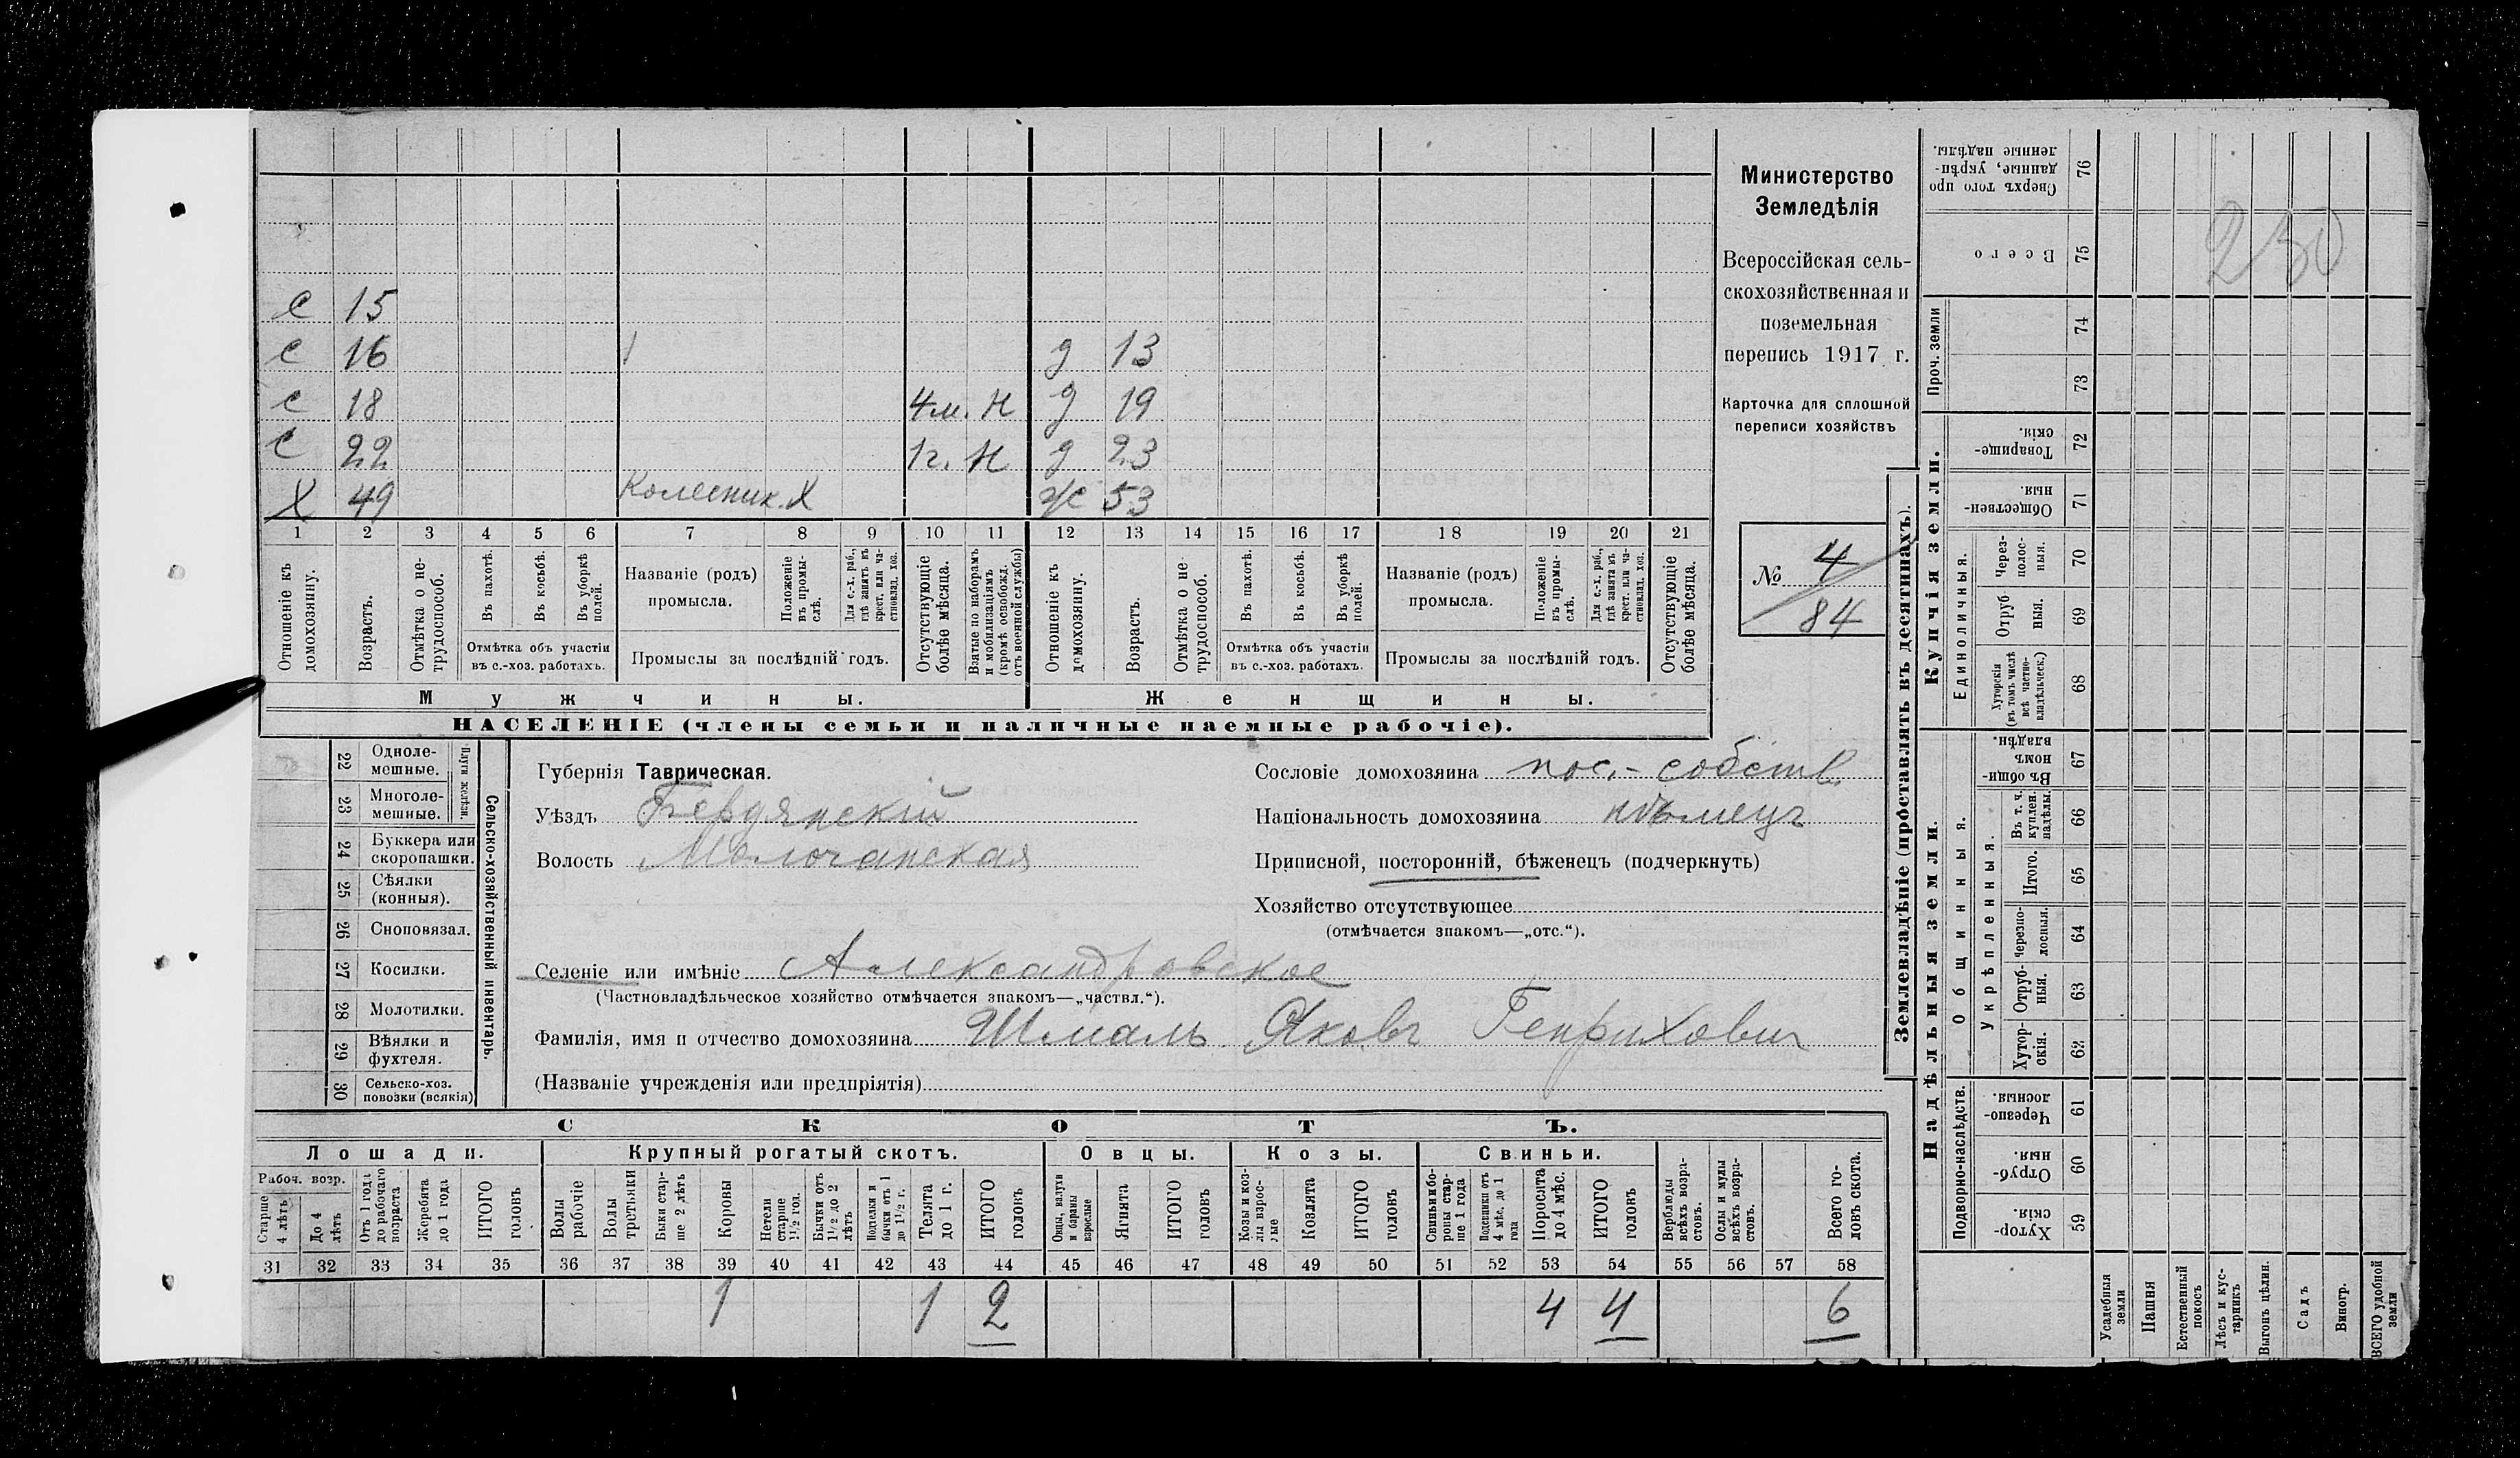 с 15
с 16 1 д 13
с 18 4 м. Н д 19
с 22 1 г. Н д 23
Х 49 Колесник. Х ж 53
1 2 3 4 5 6 7 8 9 10 11 12 13 14 15 16 17 18 19 20 21
Отношеніе къ домохозяину.
Возрастъ.
Отмѣтка о не-трудоспособ.
Въ пахотѣ.
Въ косьбѣ.
Въ уборкѣ полей.
Отмѣтка объ участіи
въ с.-хоз. работахъ.
Названіе (родъ)
промысла.
Положеніе въ промы-слѣ.
Для с.-х. раб., гдѣ занятъ въ крест. или ча-стновлад. хоз.
Промыслы за послѣдній годъ.
Отсутствующіе болѣе мѣсяца.
Взятые по наборамъ и мобилизаціямъ (кромѣ освобожд. отъ военной службы)
Отношеніе къ домохозяину.
Возрастъ.
Отмѣтка о не трудоспособ.
Въ пахотѣ.
Въ косьбѣ.
Въ уборкѣ полей.
Отмѣтка объ участіи
въ с.-хоз. работахъ.
Названіе (родъ)
промысла.
Положеніе въ промы-слѣ.
Для с.-х. раб., гдѣ занята въ крест. или ча-стновлад. хоз.
Промыслы за послѣдній годъ.
Отсутствующіе болѣе мѣсяца.
Мужчины.
Женщины.
НАСЕЛЕНІЕ (члены семьи и наличные наемные рабочіе).
Министерство
Земледѣлія
Всероссійская сель-
скохозяйственная и
поземельная
перепись 1917 г.
Карточка для сплошной
переписи хозяйствъ
№ 4
84
22 Одноле-мешные.
23 Многоле-мешные.
Плуги желѣзн.
24 Буккера или скоропашки.
25 Сѣялки (конныя).
26 Сноповязал.
27 Косилки.
28 Молотилки.
29 Вѣялки и фухтеля.
30 Сельско-хоз. повозки (всякія)
Сельско-хозяйственный инвентарь.
Губернія Таврическая.
Уѣздъ Бердянскій
Волость Молочанская
Селеніе или имѣніе Александровское
(Частновладѣльческое хозяйство отмѣчается знакомъ—„частвл.“).
Фамилія, имя и отчество домохозяина Шмаль Яковъ Генрихович
(Названіе учрежденія или предпріятія)
Сословіе домохозяина пос.- собств.
Національность домохозяина нѣмецъ
Приписной, посторонній, бѣженецъ (подчеркнуть)
Хозяйство отсутствующее
(отмѣчается знакомъ—„отс.“).
СКОТЪ.
Лошади. Крупный рогатый скотъ. Овцы. Козы. Свиньи.
Рабоч. возр.
Старше 4 лѣтъ
До 4 лѣтъ
Отъ 1 года до рабочаго возраста
Жеребята до 1 года
ИТОГО головъ
Волы рабочіе
Волы третьяки
Быки стар-ше 2 лѣтъ
Коровы
Нетели старше 1½ год.
Бычки отъ 1½ до 2 лѣтъ
Подтелки и бычки отъ 1 до 1½ г.
Телята до 1 г.
ИТОГО головъ
Овцы, валухи и бараны взрослые
Ягнята
ИТОГО головъ
Козы и коз-лы взрос-лые
Козлята
ИТОГО головъ
Свиньи и бо-ровы стар-ше 1 года
Подсвинки отъ 4 мѣс. до 1 года
Поросята до 4 мѣс.
ИТОГО головъ
Верблюды всѣхъ возра-стовъ.
Ослы и мулы всѣхъ возра-стовъ.
Всего го-ловъ скота.
31 32 33 34 35 36 37 38 39 40 41 42 43 44 45 46 47 48 49 50 51 52 53 54 55 56 57 58
1 1 2 4 4 6
Землевладѣніе (проставлять въ десятинахъ).
Купчія земли.
Надѣльныя земли.
Сверхъ того про данные, укрѣп-ленные надѣлы. 76
Всего 75
Проч. земли 74
73
Товарище-скія. 72
Обществен-ныя. 71
Единоличныя.
Через-полос-ныя. 70
Отруб ныя. 69
Хуторскія (въ томъ числѣ всѣ частно-владѣльческ.) 68
Общинныя.
Въ общи-номъ владѣн. 67
Укрѣпленныя.
Въ т. ч. куплен. надѣлы. 66
Итого. 65
Черезпо-лосныя. 64
Отруб-ныя. 63
Хутор-скія. 62
Подворно-наслѣдств.
Черезпо-лосныя. 61
Отруб-ныя. 60
Хутор-скія. 59
Усадебныя земли
Пашня
Естественный покосъ
Лѣсъ и кус-тарникъ
Выгонъ цѣлин.
Садъ
Виногр.
ВСЕГО удобной земли
230